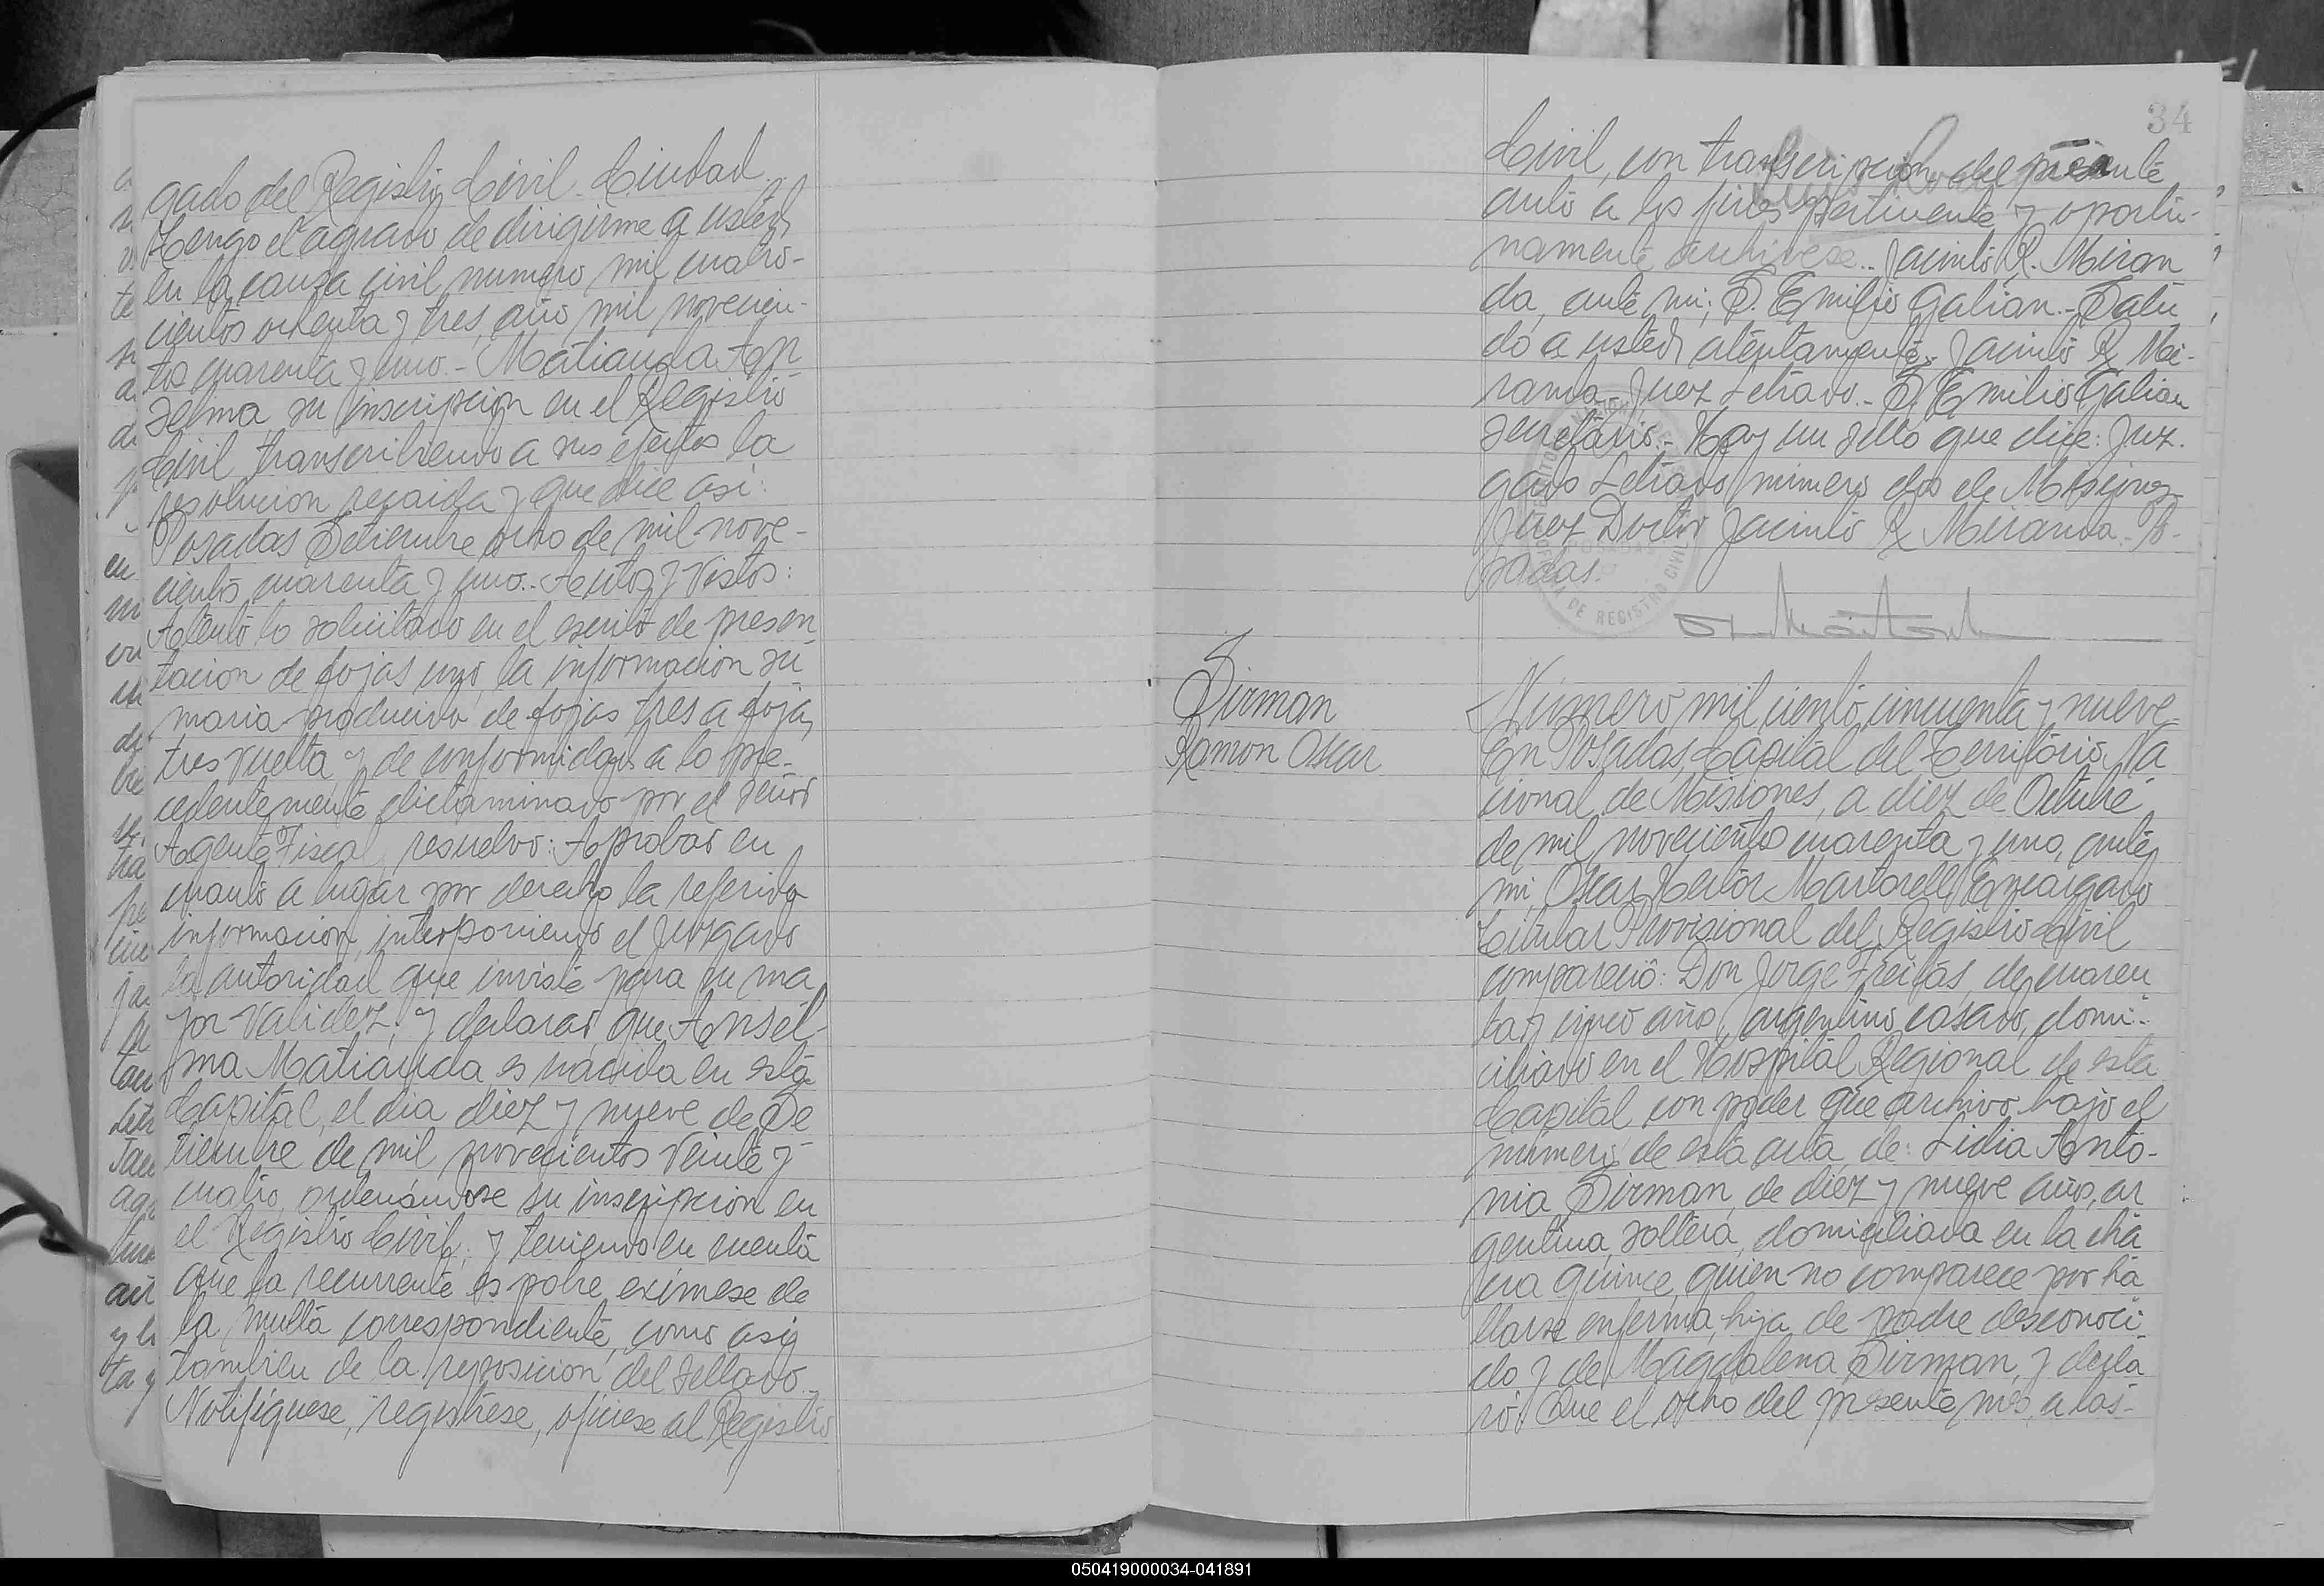 gado del Registro Civil. Ciudad.
Tengo el agrado de dirigirme a usted
en la causa civil numero mil cuatro-
cientos ochenta y tres, año mil novecien-
tos cuarenta y uno.- Matiauda An
selma, su inscripcion en el Registro
Civil transcribiendo a sus efectos la
resolucion recaida y que dice asi:
Posadas Setiembre ocho de mil nove-
cientos cuarenta y uno.- Autos y Vistos:
Atento lo solicitado en el escrito de presen
tacion de fojas uno, la informacion su
maria producida de fojas tres a fojas
tres vuelta y de conformidad a lo pre-
cedentemente dictaminado por el señor
Agente Fiscal, resuelvo: Aprobar en
cuanto a lugar por derecho la referida
informacion, interponiendo el Juzgado
la autoridad que inviste para su ma
yor validez; y declarar que Ansel
ma Matiauda es nacida en esta
Capital, el dia diez y nueve de Se
tiembre de mil novecientos veinte y
cuatro, ordenándose su inscripcion en
el Registro Civil; y teniendo en cuenta
que la recurrente es pobre, exímese de
la multa correspondiente, como asi
tambien de la reposicion del sellado.
Notifíquese, regístrese, ofíciese al Registro
34
Civil, con transcripcion del presente
auto a los fines pertinente y oportu-
namente archivese.. Jacinto R. Miran
da, ante mi; S. Emilio Galian.- Salu
do a usted atentamente. Jacinto R. Mi-
randa- Juez Letrado.- S. Emilio Galian
secretario.- Hay un sello que dice: Juz.
gado Letrado número dos de Misiones
Juez Doctor Jacinto R. Miranda.- Po-
sadas.
OFICINA DE REGISTRO CIVIL
Sirman
Ramon Oscar
Número mil ciento cincuenta y nueve-
En Posadas, Capital del Territorio Na
cional de Misiones, a diez de Octubre
de mil novecientos cuarenta y uno, ante
mi, Oscar Hector Martorell Encargado
Titular Provisional del Registro Civil
compareció: Don Jorge Freitas, de cuaren
ta y cinco años, argentino casado, domi-
ciliado en el Hospital Regional de esta
Capital con poder que archivo bajo el
número de esta acta de: Lidia Anto-
nia Sirman, de diez y nueve años, ar
gentina, soltera, domiciliada en la cha
cra quince, quien no comparece por ha
llarse enferma, hija de padre desconoci
do y de Magdalena Sirman, y decla
ró: Que el ocho del presente mes, a las-
050419000034-041891